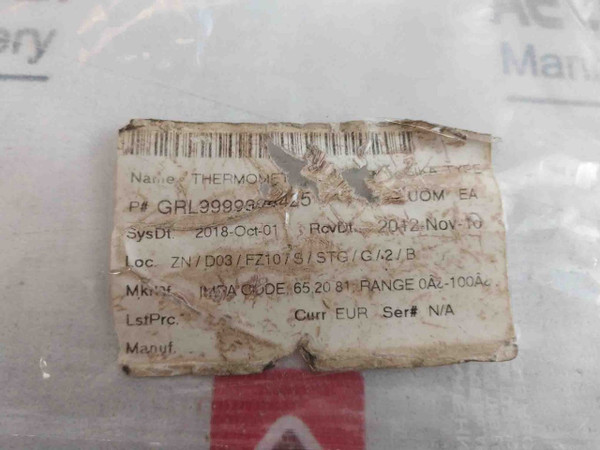 ery
Man
Name THERMOMET SIKA TYPE
P# GRL99993 425 UOM EA
SysDt. 2018-Oct-01 RcvDt. 2012-Nov-10
Loc. ZN / D03 / FZ10 / S / STG / G / 2 / B
IMPA CODE: 65.20.81, RANGE 0Â-100Â
LstPrc. Curr EUR Ser# N/A
Manuf.